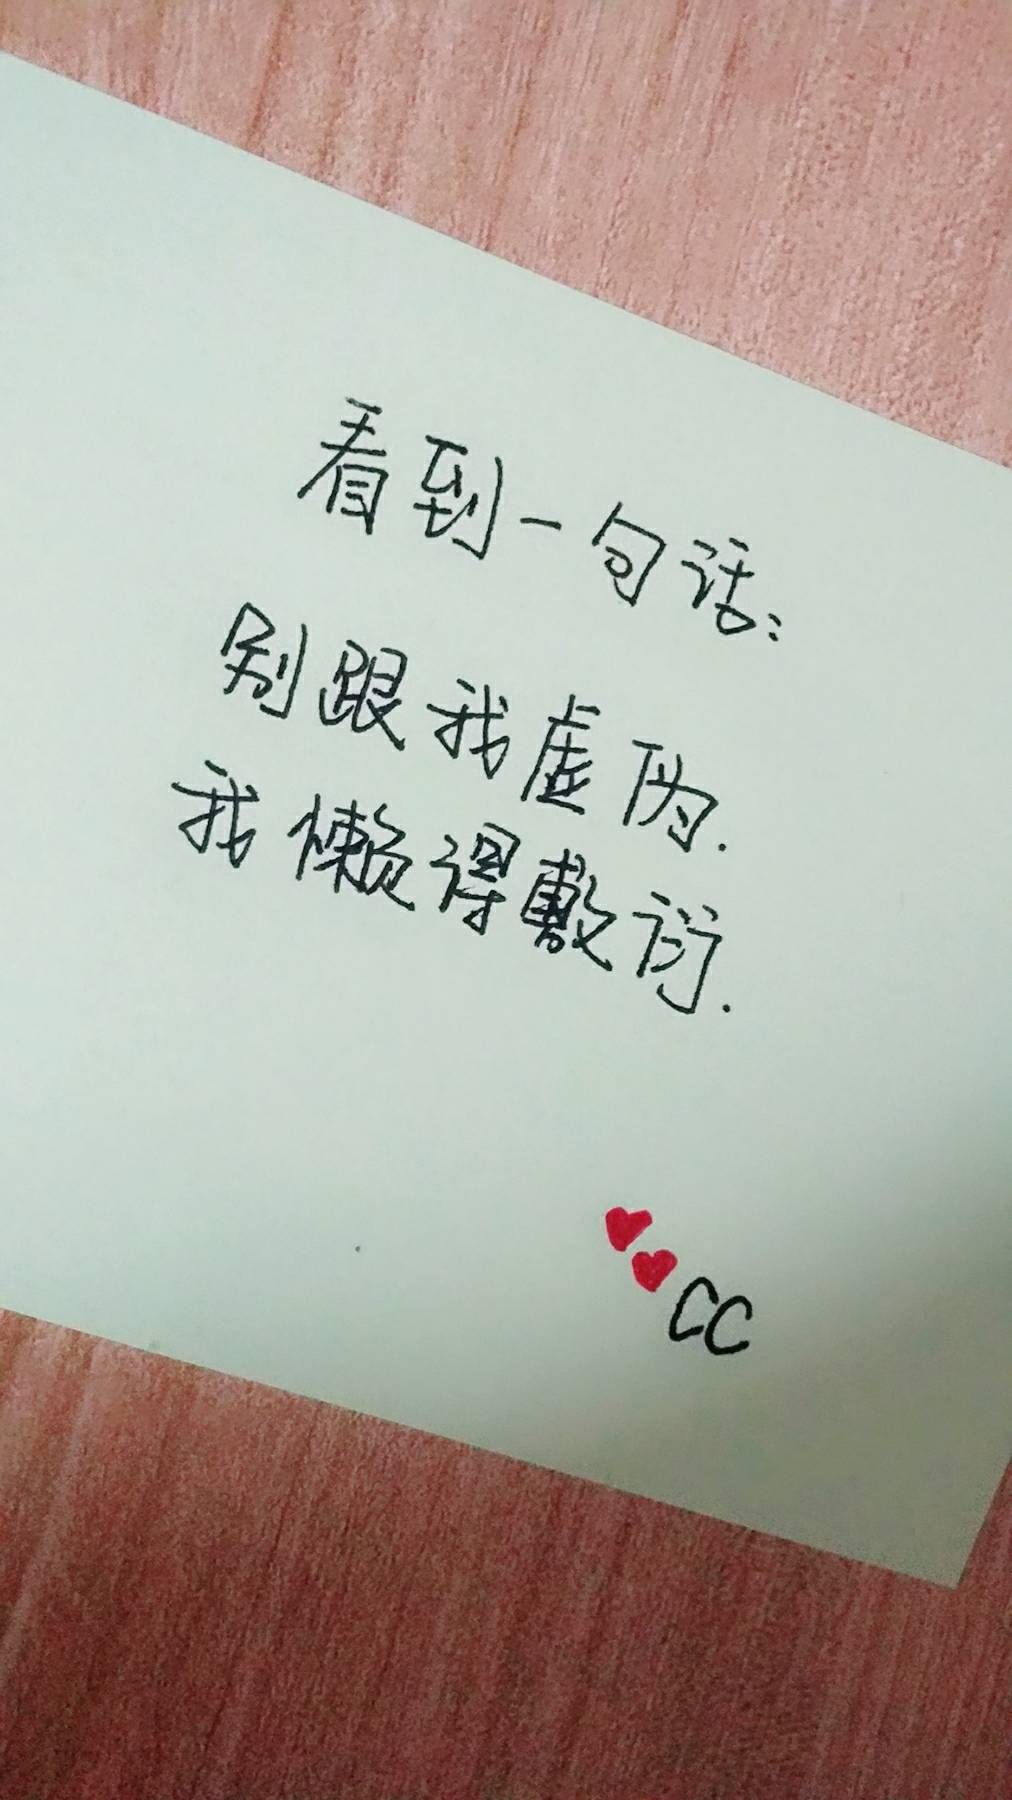 看到一句话:
别跟我虚伪.
我懒得敷衍.
CC